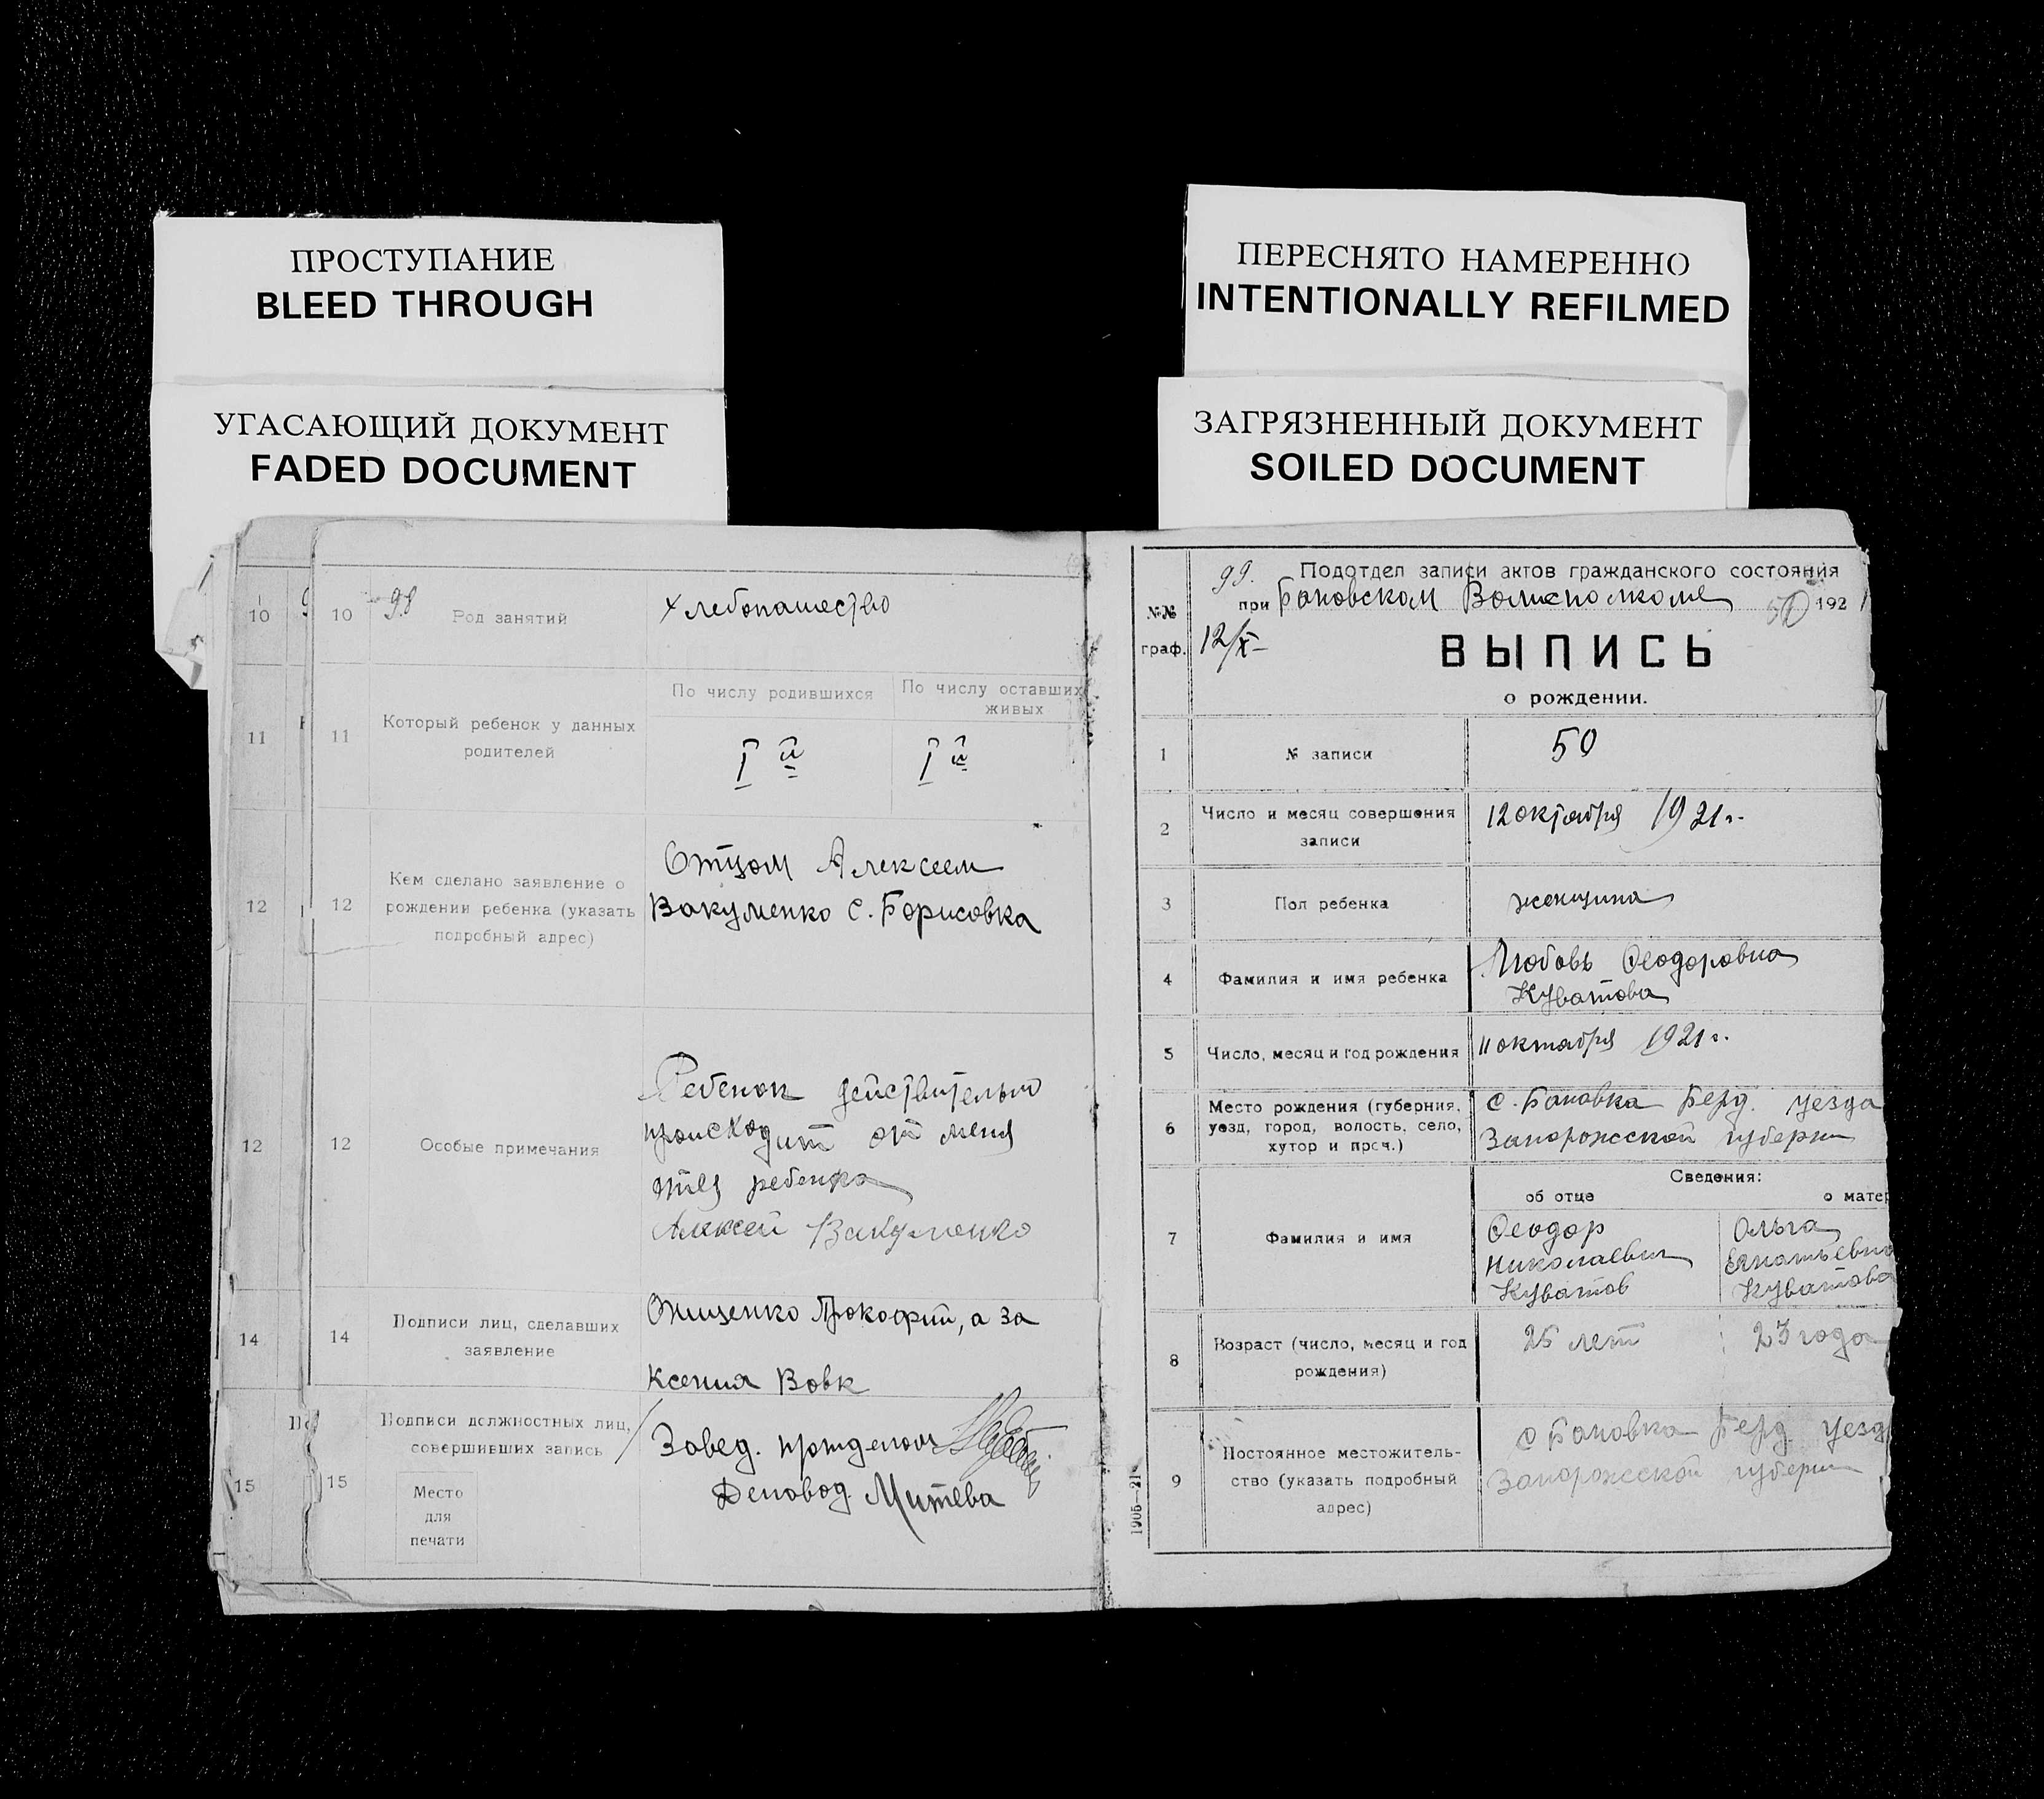 ПРОСТУПАНИЕ
BLEED THROUGH
УГАСАЮЩИЙ ДОКУМЕНТ
FADED DOCUMENT
ПЕРЕСНЯТО НАМЕРЕННО
INTENTIONALLY REFILMED
ЗАГРЯЗНЕННЫЙ ДОКУМЕНТ
SOILED DOCUMENT
10
10
98
Род занятий
Хлебопашество
11
11
Который ребенок у данных
родителей
По числу родившихся
По числу оставших
живых
I й
I й
12
12
Кем сделано заявление о
рождении ребенка (указать
подробный адрес)
Отцом Алексеем
Вакуменко с. Борисовка
12
12
Особые примечания
Ребенок действительно
происходит от меня
отец ребенка
Алексей Вакуменко
14
14
Подписи лиц, сделавших
заявление
Онищенко Прокофий, а за
Ксения Вовк
15
15
Подписи должностных лиц,
совершивших запись
Место
для
печати
Завед.
Деловод. Митева
99.
Подотдел записи актов гражданского состояния
№№
граф.
при Бановском Волисполкоме 50 1921
12/X
ВЫПИСЬ
о рождении.
1
№ записи
50
2
Число и месяц совершения
записи
12 октября 1921 г.
3
Пол ребенка
женщина
4
Фамилия и имя ребенка
Любовь Феодоровна
Куватова
5
Число, месяц и год рождения
11 октября 1921 г.
6
Место рождения (губерния,
уезд, город, волость, село,
хутор и проч.)
с. Бановка Берд. уезда
Запорожской губерн
7
Фамилия и имя
Сведения:
об отце
о матер
Феодор
Николаевич
Куватов
Ольга
Игнатьевна
Куватова
8
Возраст (число, месяц и год
рождения)
25 лет
23 года
9
Постоянное местожитель-
ство (указать подробный
адрес)
с Бановка Берд уезд
Запорожской губерн
1905—21